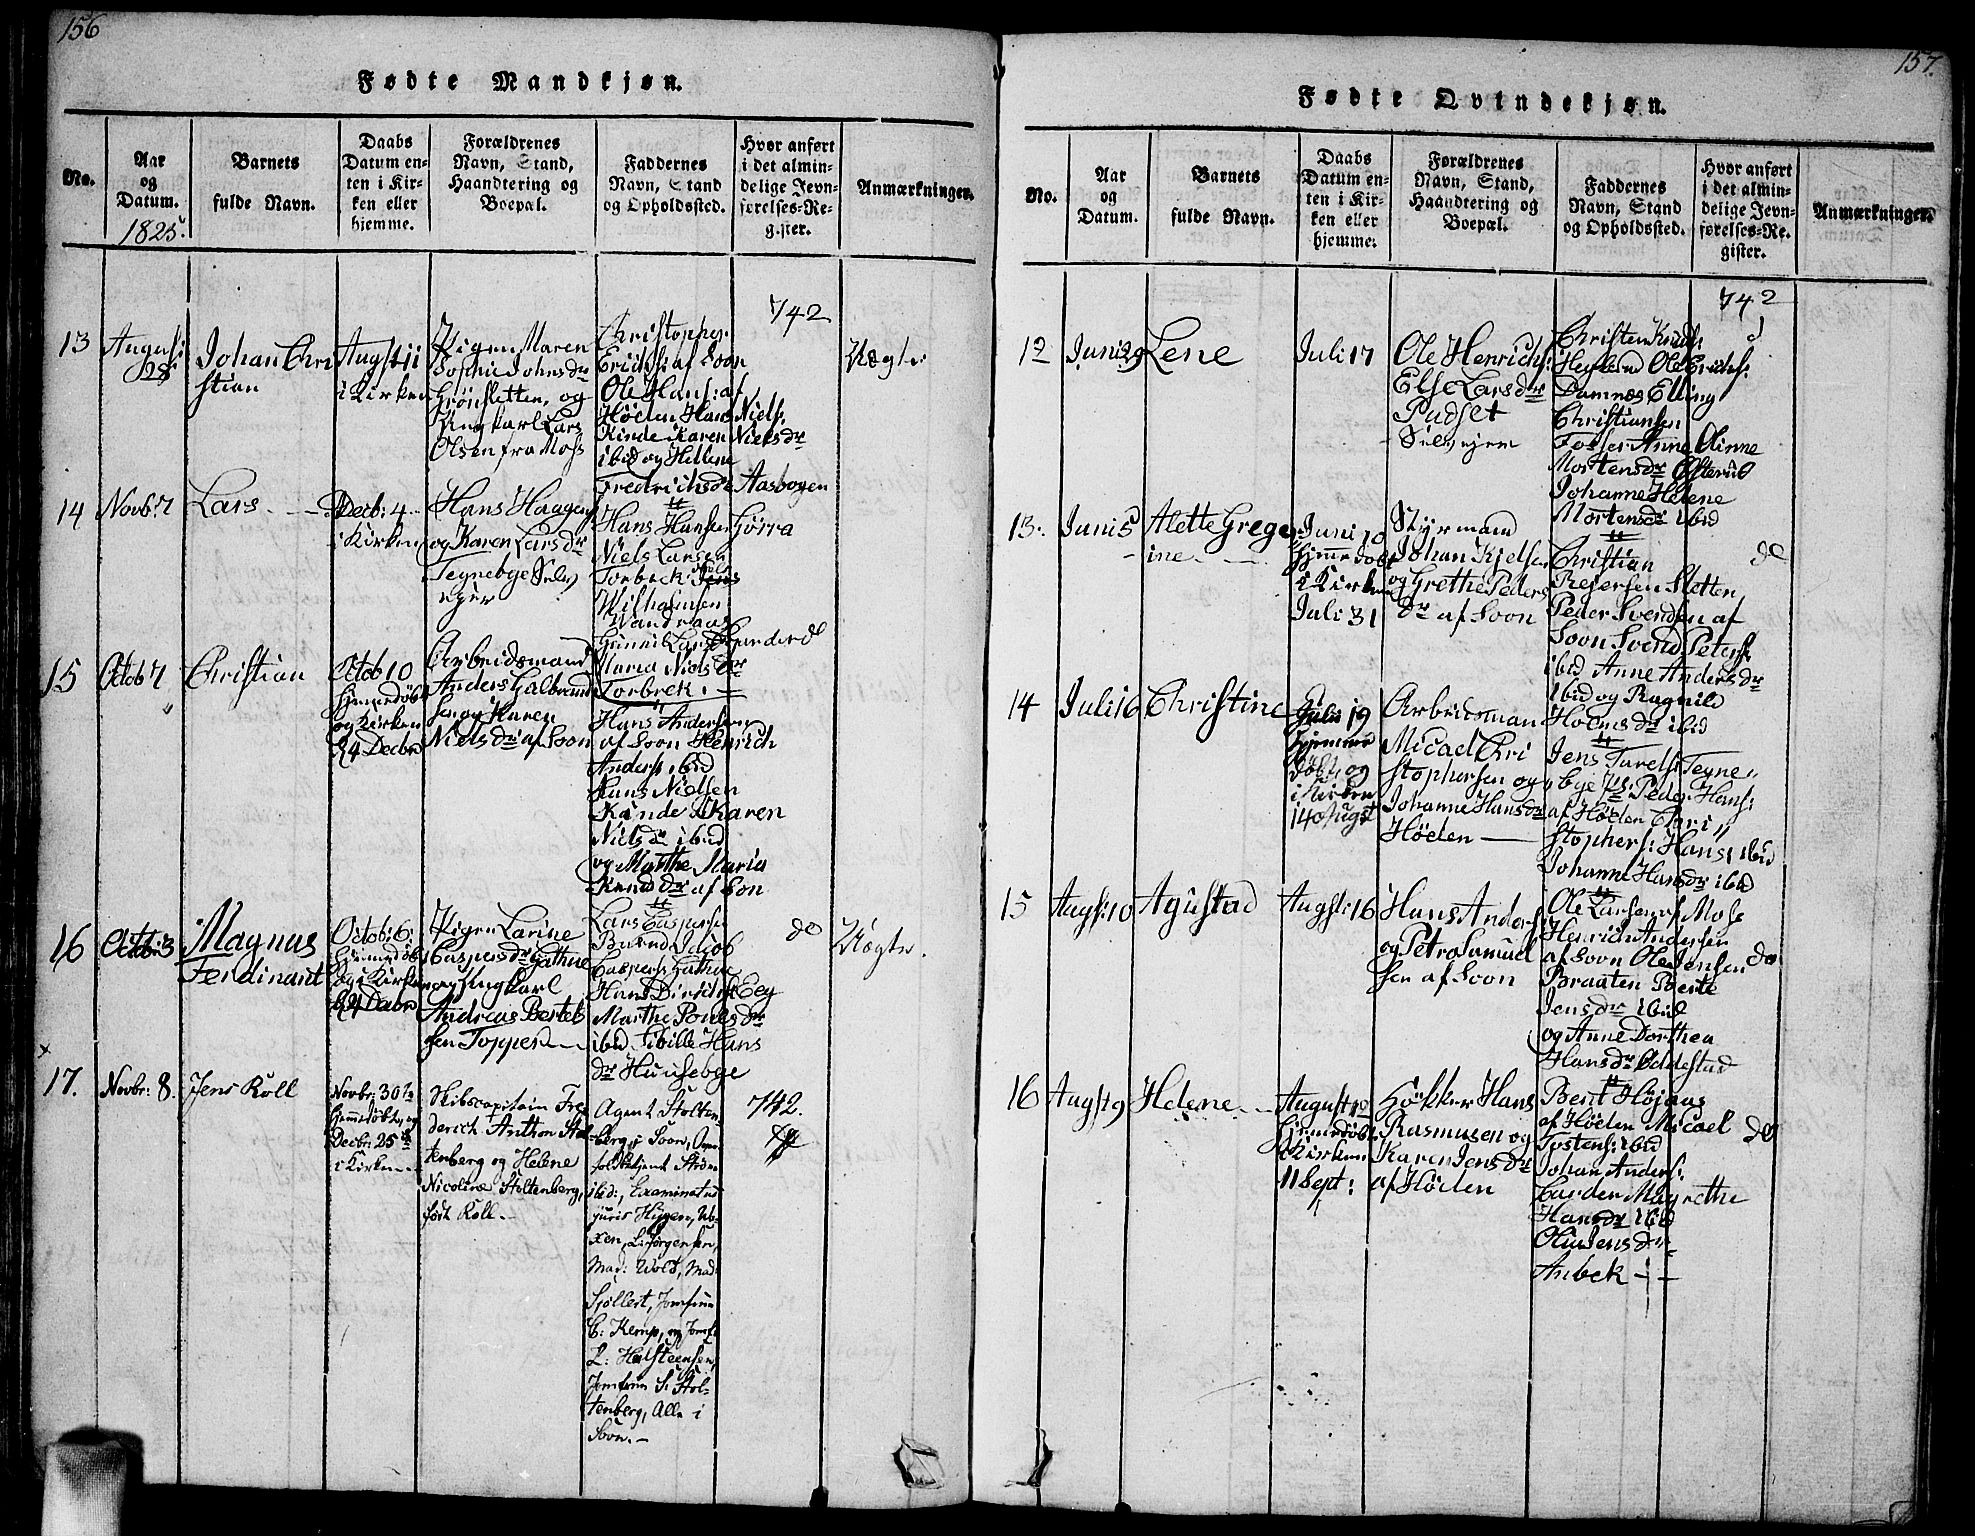 156
Fødte Mandkjøn.
No.
Aar
og
Datum.
1825.
Barnets
fulde Navn.
Daabs
Datum en-
ten i Kir-
ken eller
hjemme.
Forældrenes
Navn, Stand,
Haandtering og
Boepæl.
Faddernes
Navn, Stand
og Opholdssted.
Hvor anført
i det almin-
delige Jevn-
førelses-Re-
gister.
Anmærkninger.
13
August
28
Johan Chri
stian
i Kirken
Pigen Maren
Sophie Johnsdr
Grønsletten, og
Ungkarl Lars
Olsen fra Moss
Christopher
Erichs: af Soon
Ole Hans: af
Höden Hans Niels:
Kinde Karen Nielsdr
ibid og Hellene
Fredrichsdr Aasbogen
742
Uægte
14
Novb: 7
Lars
Decb: 4
i Kirken
Hans Haagens
og Karen Larsdr
Tegnebye Selv
ejer
Hans Hansen Görra
Niels Larsen
Torbeck
Wilhelmsen
Maria Nielsdr
Torbeck.
do
15
Octob 7
Christian
Octob 10
hjemmedöbt
og i Kirken
24 Decbr
Arbeidsmand
Anders Galbrand
sen og Karen
Nielsdr af Soon
Hans Andersen
af Soon Henrich
Anders: ibid
Hans Nielsen
Kinde Karen
Nielsdr ibid
og Marthe Maria
Knudsdr af Son
16
Octob: 3
Magnus
Ferdinant
Octob: 6
hjemmedöbt
og i Kirken
24 Decbr
Pigen Larine
Caspersdr Gathue
og Ungkarl
Andreas Bertel
sen Topper
Lars Caspersen
Jacob
Caspers: Gathue
Hans Eeg
Marthe Poulsdr
ibid Sibille Hans
dr Huusebye
do
Uægte.
17.
Novbr: 8.
Jens Röll
Novbr: 30te
hjemmedöbt, og
Decbr: 25de
i Kirken
Skibscapitain Fre
derich Anthon Stol
tenberg og Helene
Nicoline Stoltenberg,
födt Röll.
Agent Stolten
berg i Soon,
ibid:, Examinatus
juris
L: Jørgensen,
Mad: Wold, Mad:
Sjöllert, Jomfrue
C: Kemp, og Jomf:
L: Halsteensen,
Jomfrue S: Stol-
tenberg, Alle i
Soon.
742.
157.
Fødte Qvindekjøn.
No.
Aar
og
Datum.
Barnets
fulde Navn.
Daabs
Datum en-
ten i Kir-
ken eller
hjemme.
Forældrenes
Navn, Stand,
Haandtering og
Boepæl.
Faddernes
Navn, Stand
og Opholdssted.
Hvor anført
i det almin-
delige Jevn-
førelses-Re-
gister.
Anmærkninger.
12
Juni 29
Lene
Juli 17
Ole Henrichs:
Else Larsdr
Pudset
Selvejer
Christen Knuds:
Ole Erichs:
Damnæs Elling
Christiansen
Fosser Anne Olinne
Mortensdr Österud
Johanne Helene
Mortensdr ibid
742
13.
Juni 5
Alette Greger
ine
Juni 10
hjemmedöbt
i Kirken
Juli 31
Styrmand
Johan Kjelsen
og Grethe Peders
dr af Soon
Christian
Rejersen Sletten
Peder Svendsen af
Soon Svend Peters:
ibid Anne Andersdr
ibid og Ragnild
Holmsdr ibid
do
14
Juli 16
Christine
Juli 19
hjemme
döbt, og
i Kirken
14 August
Arbeidsman
Micael Chri
stophersen og
Johanne Hansdr
Höden
Jens Turels: Tegne
bye Peder Hans:
af Höden Chri
stophers: Hans: ibid
Johanne Hansdr ibid
15
Augst: 10
Agustad
Augst: 16
Hans Anders:
og Petra Samuel
sen af Soon
Ole Larsen af Moss
Henrich Andersen
af Soon Ole Jensen
Braaten Berte
Jensdr ibid
og Anne Dorthea
Hansdr Oddestad
do
16
Augst 9
Helene
August 12
hjemmedöbt
i Kirken
11 Sept:
Hökker Hans
Rasmusen og
Karen Jensdr
af Höden
Bent Höjaas
af Höden Micael
Tostens: ibid
Johan Anders:
Garder Magrethe
Hansdr ibid
Olia Jensdr
Anbek
do